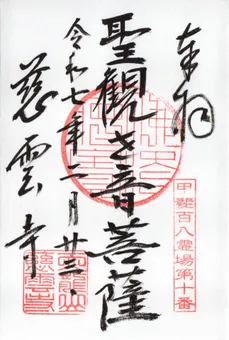 奉拝
甲斐百八霊場第十番
聖観世音菩薩
令和七年二月廿三日
慈雲寺